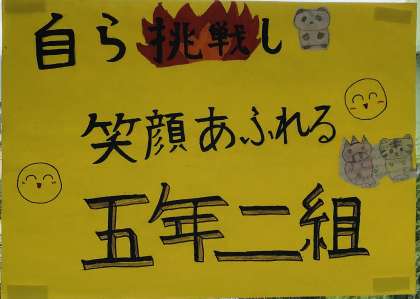 自ら挑戦し
笑顔あふれる
五年二組